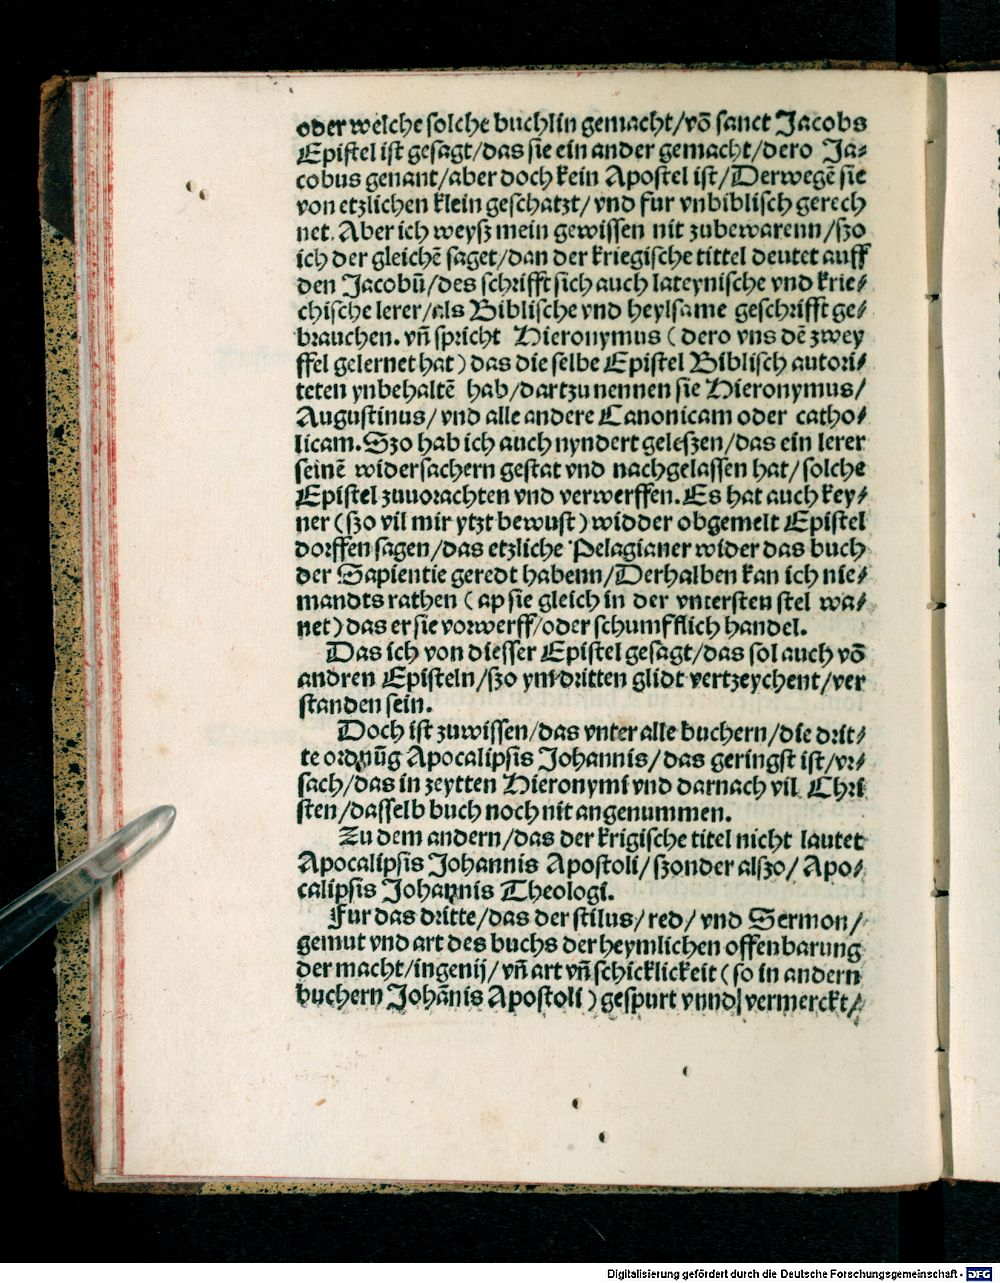 oder welche solche buchlin gemacht/võ sanct Jacobs
Epistel ist gesagt/das sie ein ander gemacht/dero Ja⸗
cobus genant/aber doch kein Apostel ist/Derwegẽ sie
von etzlichen klein geschatzt/vnd fur vnbiblisch gerech
net. Aber ich weysz mein gewissen nit zubewarenn/szo
ich der gleichẽ saget/dan der kriegische tittel deutet auff
den Jacobũ/des schrifft sich auch lateynische vnd krie⸗
chische lerer/als Biblische vnd heylsame geschrifft ge⸗
brauchen. vñ spricht Hieronymus (dero vns dẽ zwey
ffel gelernet hat) das die selbe Epistel Biblisch autori⸗
teten ynbehaltẽ hab/dartzu nennen sie Hieronymus/
Augustinus/vnd alle andere Canonicam oder catho⸗
licam. Szo hab ich auch nyndert geleszen/das ein lerer
seinẽ widersachern gestat vnd nachgelassen hat/solche
Epistel zuuorachten vnd verwerffen. Es hat auch key⸗
ner (szo vil mir ytzt bewust) widder obgemelt Epistel
dorffen sagen/das etzliche Pelagianer wider das buch
der Sapientie geredt habenn/Derhalben kan ich nie⸗
mandts rathen (ap sie gleich in der vntersten stel wa⸗
net) das er sie vorwerff/oder schumfflich handel.
Das ich von diesser Epistel gesagt/das sol auch võ
andren Episteln/szo ym dritten glidt vertzeychent/ver
standen sein.
Doch ist zuwissen/das vnter alle buchern/die drit⸗
te ordnũg Apocalipsis Johannis/das geringst ist/vr⸗
sach/das in zeytten Hieronymi vnd darnach vil Chri
sten/dasselb buch noch nit angenummen.
Zu dem andern/das der krigische titel nicht lautet
Apocalipsis Johannis Apostoli/szonder alszo/Apo⸗
calipsis Johannis Theologi.
Fur das dritte/das der stilus/red/vnd Sermon/
gemut vnd art des buchs der heymlichen offenbarung
der macht/ingenij/vñ art vñ schicklickeit (so in andern
buchern Johãnis Apostoli) gespurt vnnd vermerckt/
Digitalisierung gefördert durch die Deutsche Forschungsgemeinschaft - DFG